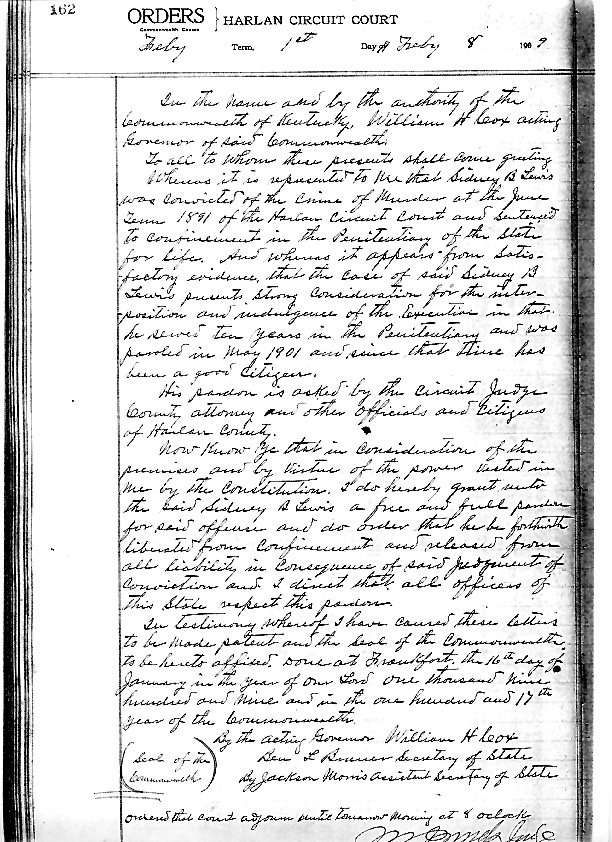 162
ORDERS } HARLAN CIRCUIT COURT
Commonwealth Cases
Feby Term, 1st Day of Feby 8 1909
In the name and by the authority of the
Commonwealth of Kentucky, William H Cox acting
Governor of said Commonwealth.
To all to whom these presents shall come greeting
Whereas it is represented to me that Sidney B Lewis
was convicted of the crime of Murder at the June
Term 1891 of the Harlan Circuit Court and sentenced
to confinement in the Penitentiary of the State
for life. And whereas it appears from satis-
factory evidence, that the case of said Sidney B
Lewis presents strong consideration for the inter-
position and indulgence of the Executive in that
he served ten years in the Penitentiary and was
paroled in May 1901 and since that time has
been a good citizen.
His pardon is asked by the Circuit Judge
County attorney and other officials and Citizens
of Harlan County.
Now Know Ye that in consideration of the
premises and by virtue of the power vested in
me by the Constitution. I do hereby grant unto
the said Sidney B Lewis a free and full pardon
for said offense and do order that he be forthwith
liberated from confinement and released from
all liability in consequence of said Judgement of
conviction and I direct that all officers of
this State respect this pardon.
In testimony whereof I have caused these letters
to be made patent and the Seal of the Commonwealth
to be hereto affixed. Done at Frankfort, the 16th day of
January in the year of our Lord one thousand nine
hundred and nine and in the one hundred and 17th
year of the Commonwealth.
By the acting Governor William H Cox
(Seal of the Ben L Bruner Secretary of State
Commonwealth) By Jackson Morris Assistant Secretary of State
ordered that court adjourn until tomorrow morning at 8 oclock
Judge